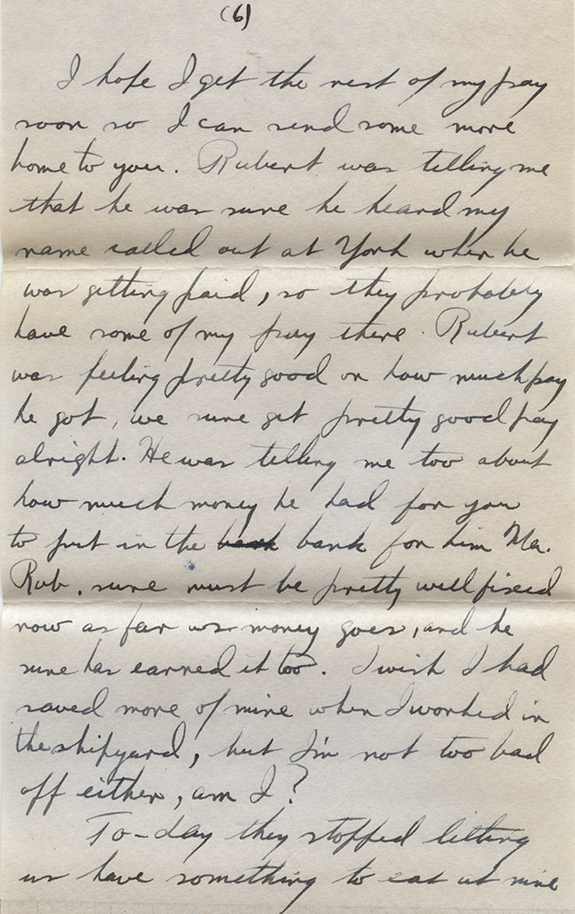 (6)
I hope I get the rest of my pay
soon so I can send some more
home to you. Rubert was telling me
that he was sure he heard my
name called out at York when he
was getting paid, so they probably
have some of my pay there. Rubert
was feeling pretty good on how much pay
he got, we sure get pretty good pay
alright. He was telling me too about
how much money he had for you
to put in the bank bank for him Ma.
Rub. sure must be pretty well fixed
now as far as money goes, and he
sure has earned it too. I wish I had
saved more of mine when I worked in
the shipyard, but I'm not too bad
off either, am I?
To-day they stopped letting
us have something to eat at nine